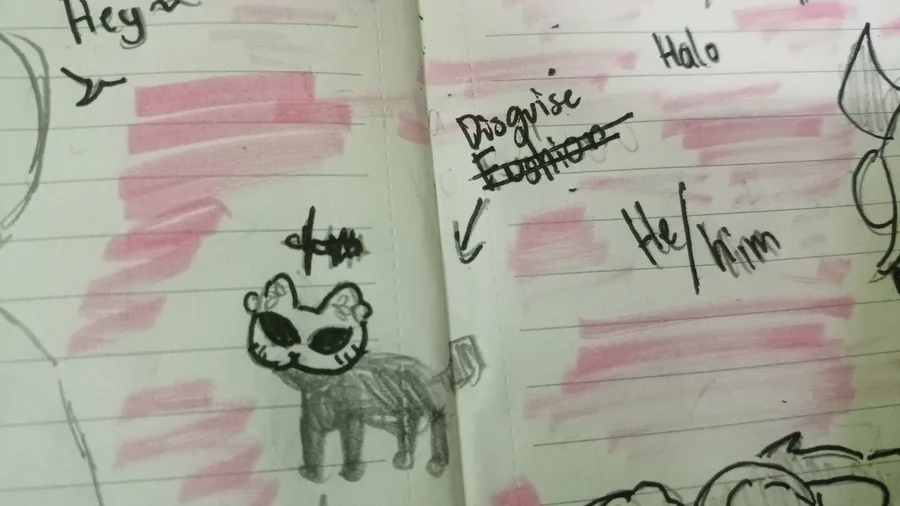 Hey
Halo
Disguise
He/him